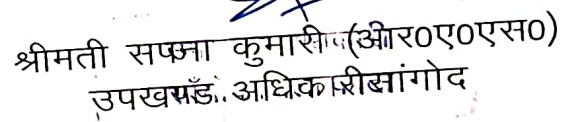 श्रीमती सपना कुमारी (आर०ए०एस०)
उपखण्ड अधिकारी सांगोद